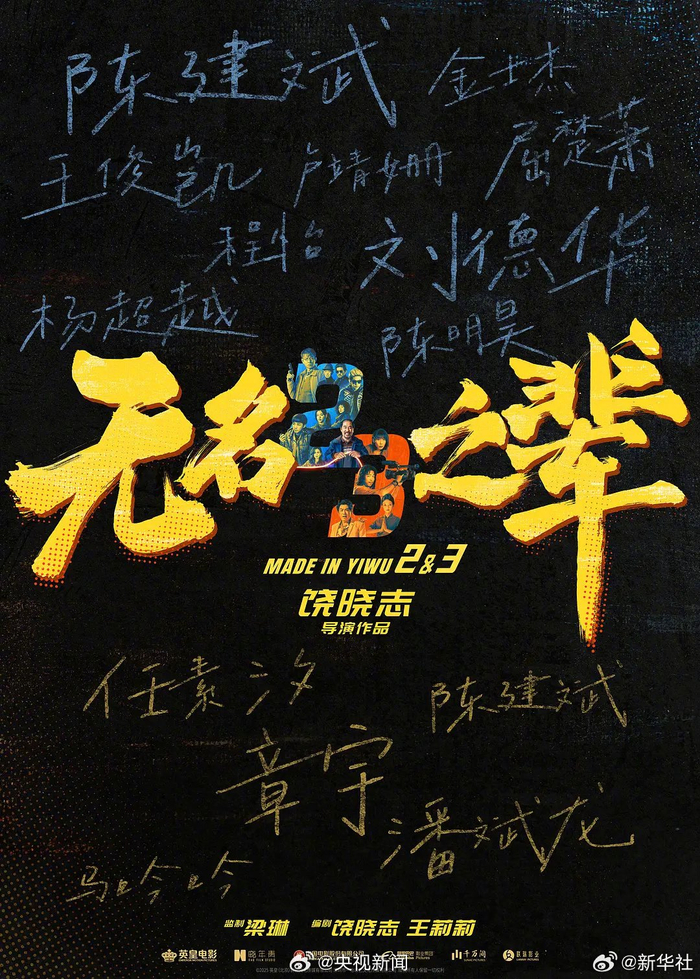 陈建斌 金士杰
王俊凯 卢靖姗 屈楚萧
程怡 刘德华
杨超越 陈明昊
无名 23 之辈
MADE IN YIWU 2&3
饶晓志
导演作品
任素汐 陈建斌
章宇
潘斌龙
马吟吟
监制 梁琳 编剧 饶晓志 王莉莉
英皇电影
@央视新闻 @新华社